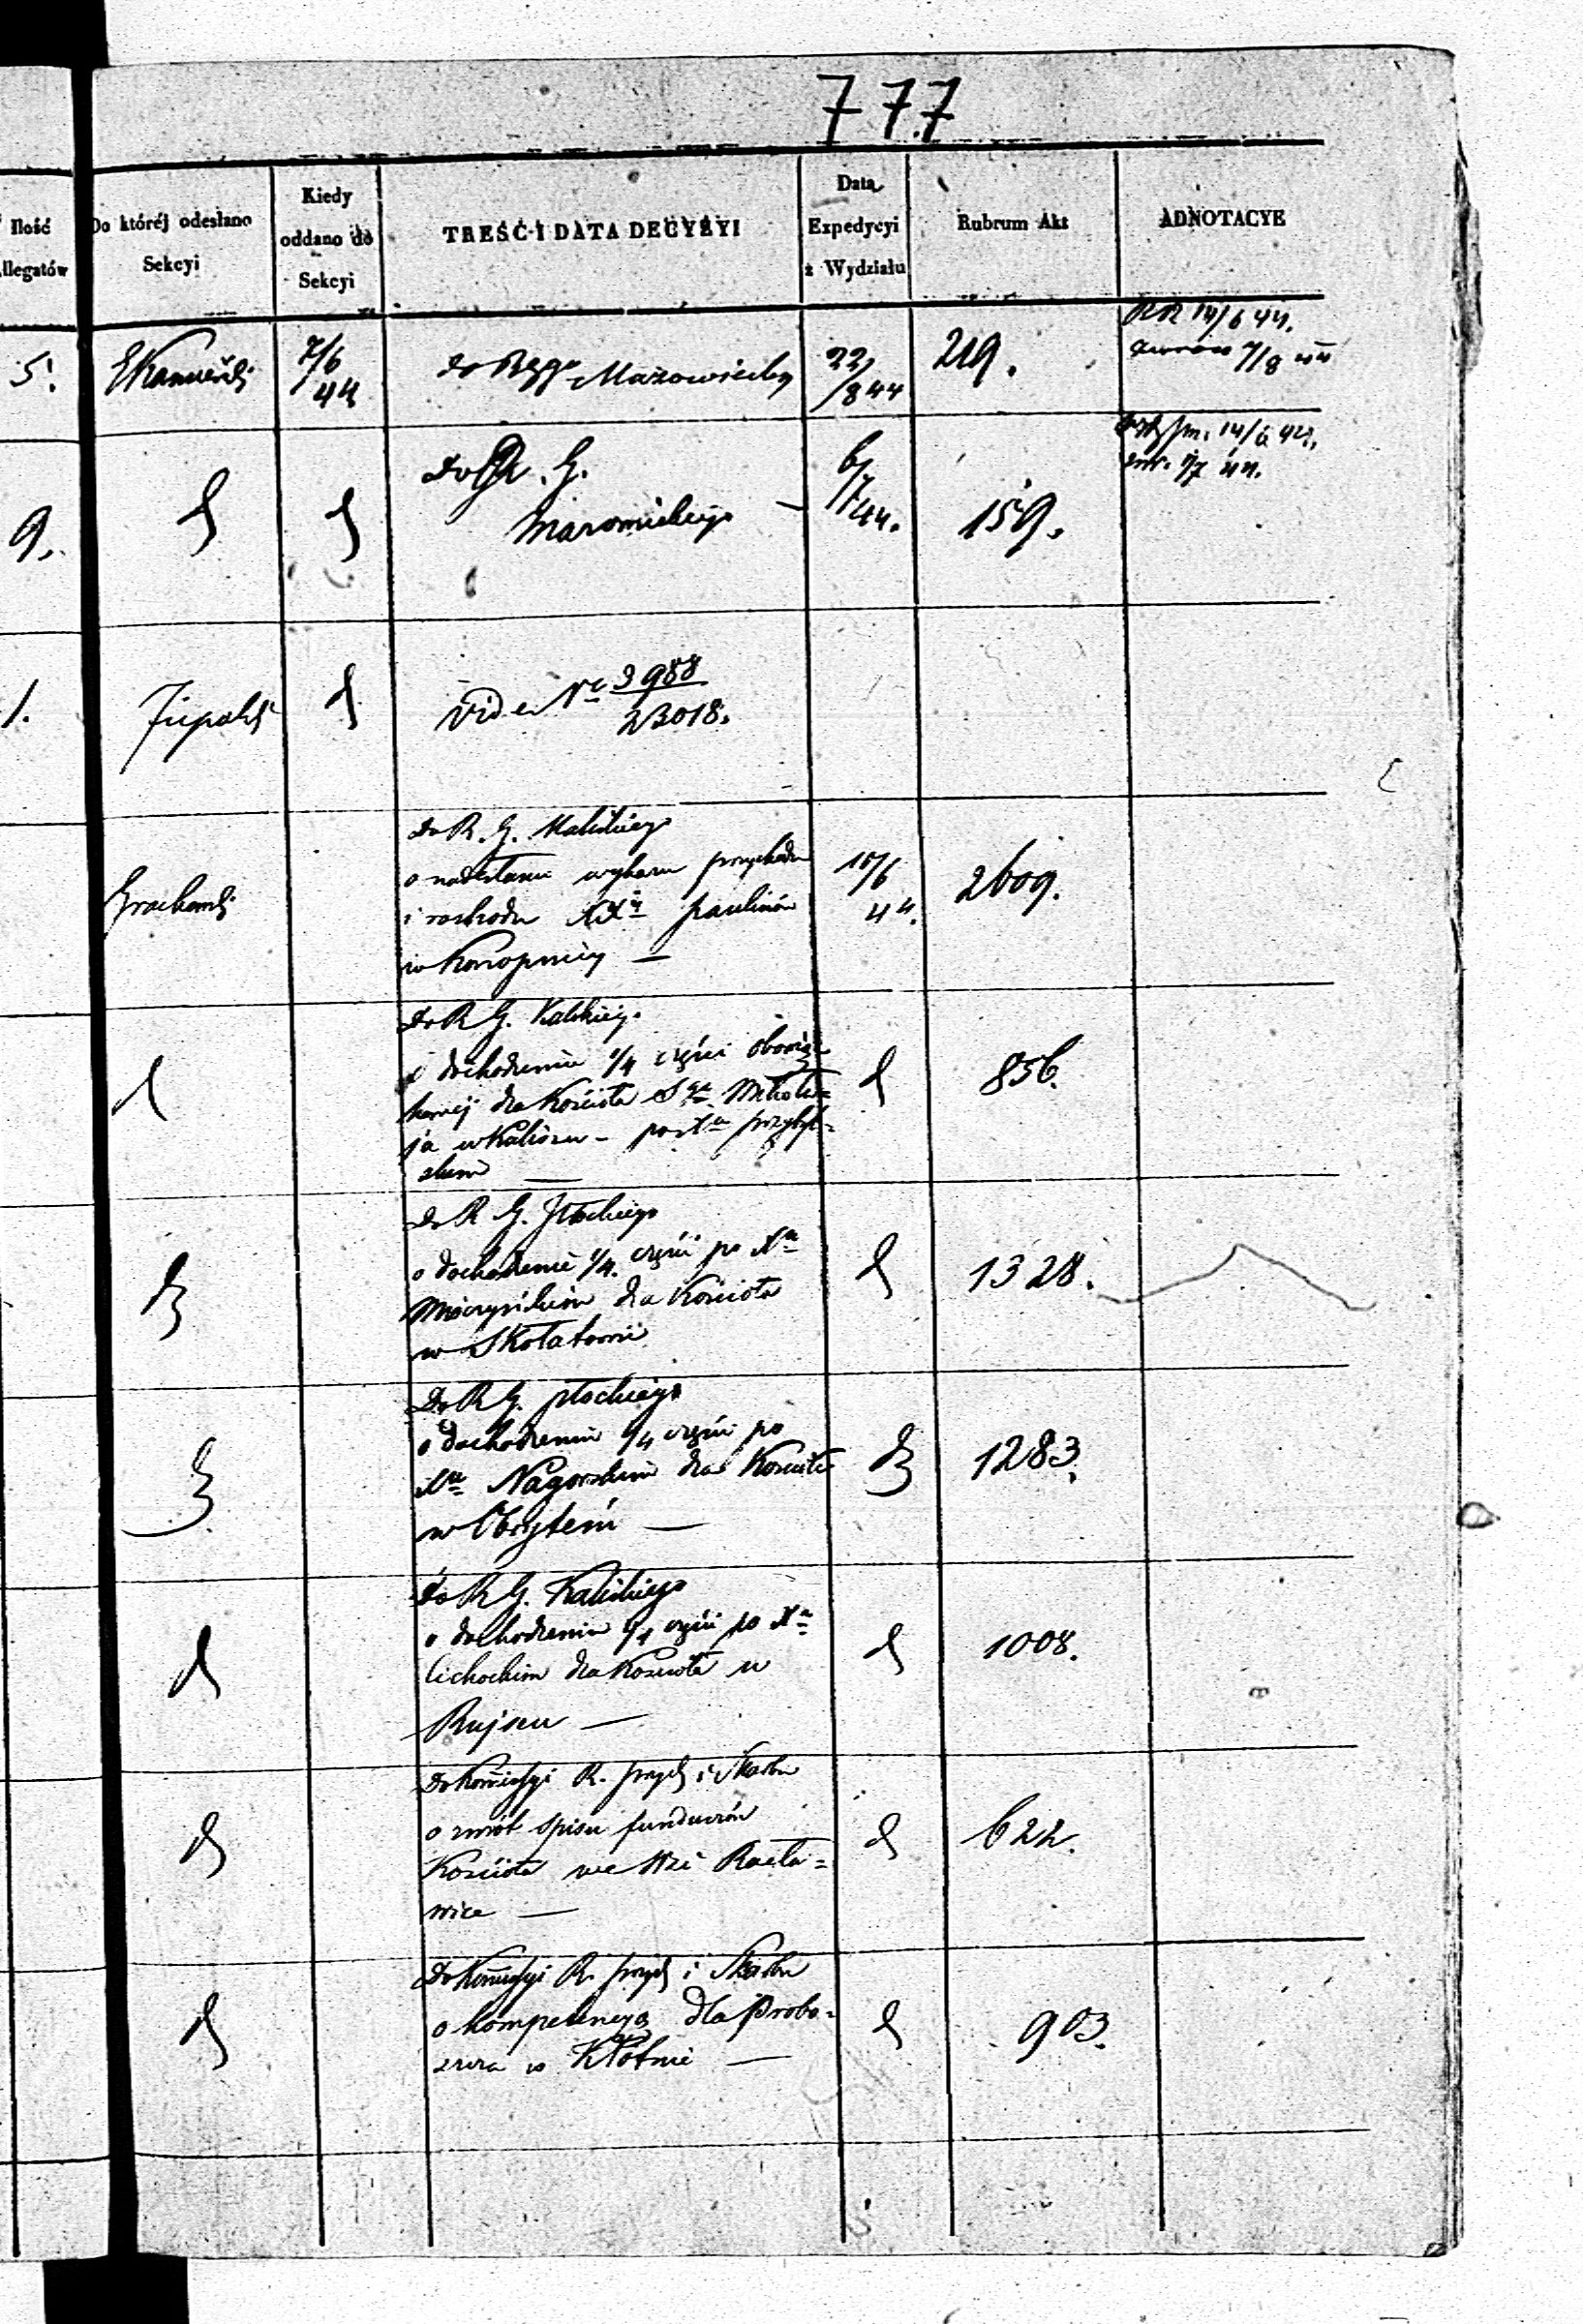 777
Ilość
llegatów
Do któréj odesłano
Sekcyi
Kiedy
oddano do
Sekcyi
TREŚĆ I DATA DECYZYI
Data
Expedycyi
z Wydziału
Rubrum Akt
ADNOTACYE
5.
7/6
44
do
Mazowiecky
22/
/8 44
219.
14/6 44.
7/8 44
9.
d
d
do R. G.
Mazowieckiego —
6/
/7
44.
159.
14/6 44.
1/7 44.
1.
d
Vide No 3988
23018.
do R. G. Kaliskiego
o nadesłanie wykazu przychodu
i rozchodu XXy paulinów
w Konopnicy —
10/6
44.
2609.
d
do R G. Kaliskiego
o dochodzenie 1/4 części
dla Kościoła Sgo Mikoła=
ja w Kaliszu - po Xu przybyl=
skim —
d
856.
d
do R G. Płockiego
o dochodzenie 1/4 części po Xu
dla Kościoła
w Skołatowie
d
1328.
d
Do R G. płockiego
o dochodzenie 1/4 części po
Xu Nagorskim dla Kościoła
w Obrytem —
d
1283.
d
do R G. Kaliskiego
o dochodzenie 1/4 części po Xu
Cichockim dla Kościoła w
Rujscu —
d
1008.
d
do Komissyi R. przych i Skarbu
o zwrót spisu funduszów
Kościoła we Wsi Racła=
wice —
d
622.
d
do Komissyi R. przych i Skarbu
o kompetencyą dla Probo=
szcza w Kłótnie —
d
903.